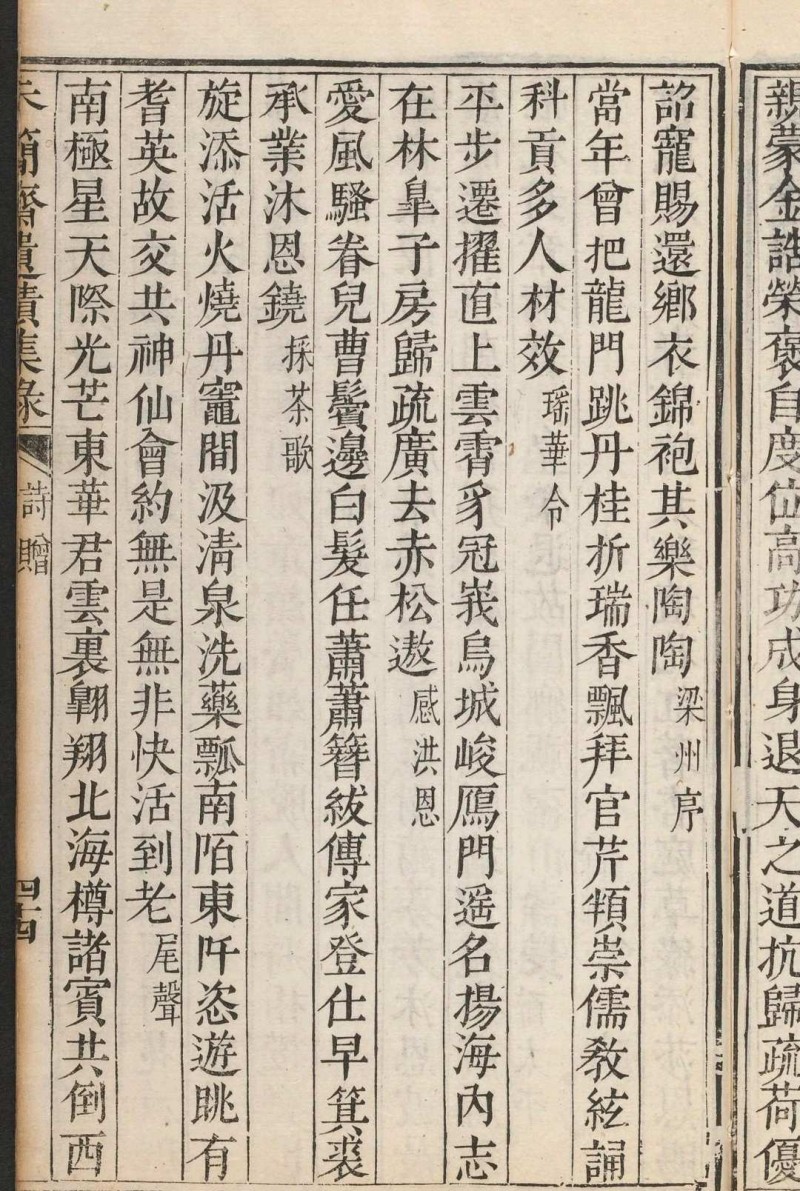 親蒙金誥榮褒自度位高功成身退天之道抗歸疏荷優
詔寵賜還鄉衣錦袍其樂陶陶梁州序
當年曾把龍門跳丹桂折瑞香飄拜官芹頖崇儒教絃誦
科貢多人材效瑶華令
平步遷擢直上雲霄豸冠峩烏城峻鴈門遥名揚海內志
在林臯子房歸疏廣去赤松遨感洪恩
愛風騷眷兒曹鬢邊白髮任蕭蕭簪紱傳家登仕早箕裘
承業沐恩饒採茶歌
旋添活火燒丹竈間汲清泉洗藥瓢南陌東阡恣遊眺有
耆英故交共神仙會約無是無非快活到老尾聲
南極星天際光芒東華君雲裏翺翔北海樽諸賓共倒西
朱簡齋遺蹟集錄 詩贈 四十四